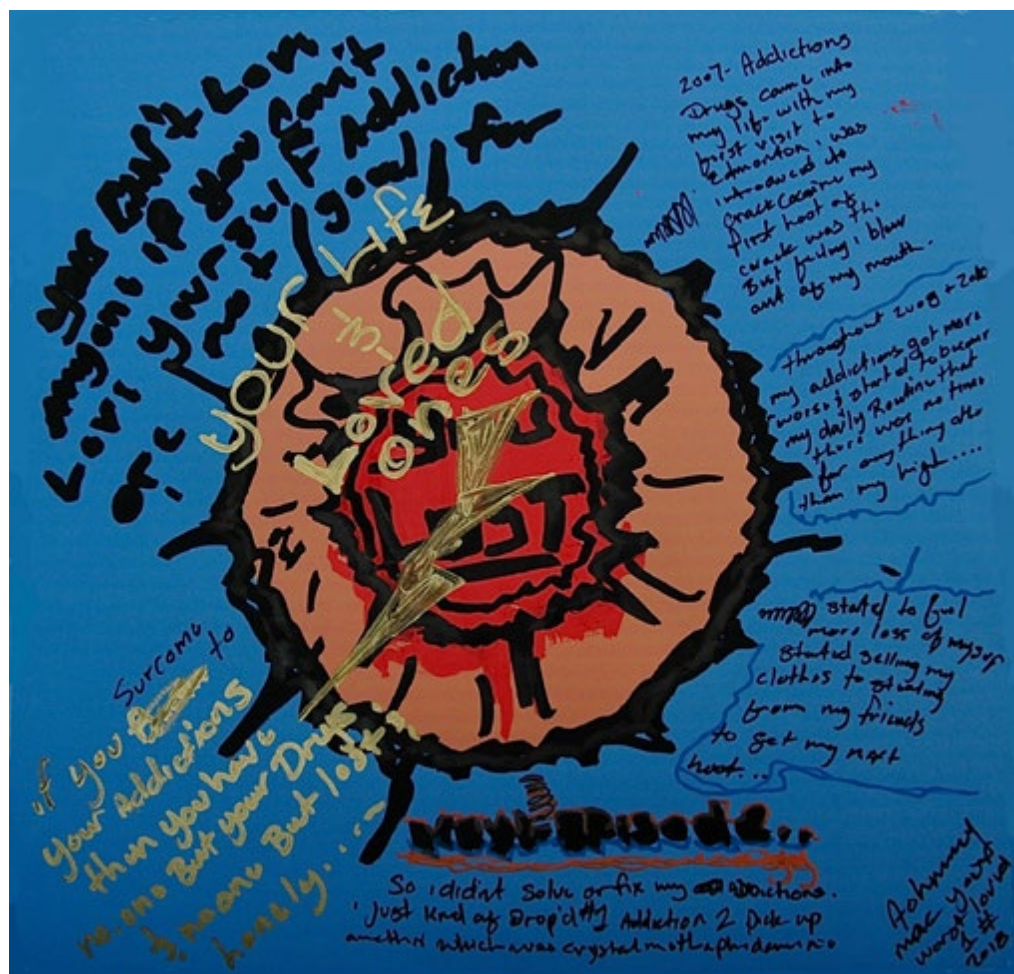 your can't Lov
anyone if you can't
Love your self Addiction
are not good for
!
your Life
is
Loved
ones
LOST
2007- Addictions
Drugs came into
my life with my
first visit to
Edmonton i was
introduced to
crack cocaine my
first hoot of
crack was the
Best feeling i blew
out of my mouth.
throughout 2008 + 2010
my addictions got more
worse; started to become
my daily Routine that
there wer no times
for any thing other
than my high....
started to fuel
more loss of myself
started selling my
clothes to stealing
from my friends
to get my next
hoot...
Surcome to
if you
your Addictions
than you have
no.one But your Drugs
& noone But lost n
lonely....
Next Episode..
So i didint solve or fix my Addictions.
Just kind of Drop'd #1 Addiction 2 Pick up
another which was crystal
Johnney
Mac
#
2018